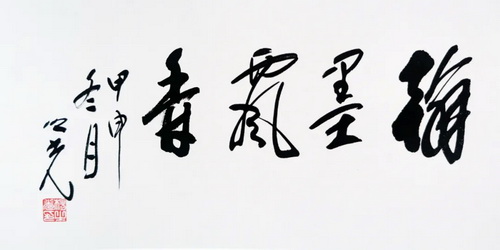 翰墨飘香
甲申
冬月